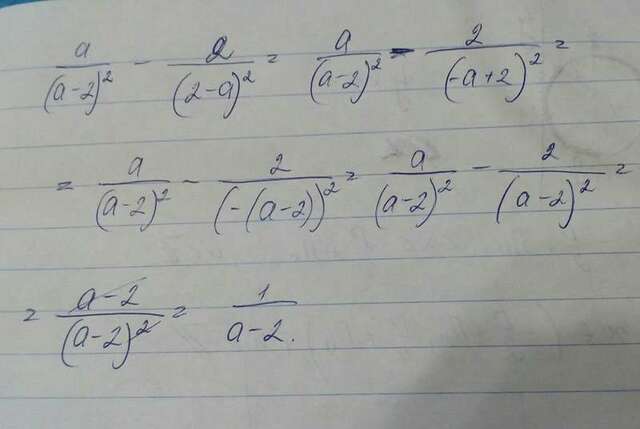 a/(a-2)² - 2/(2-a)² = a/(a-2)² - 2/(-a+2)² =
= a/(a-2)² - 2/(-(a-2))² = a/(a-2)² - 2/(a-2)² =
= a-2/(a-2)² = 1/a-2.